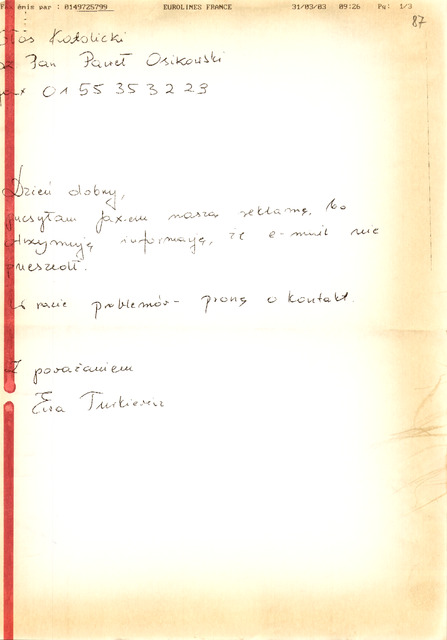 émis par : 0149725799 EUROLINES FRANCE 31/03/03 09:26 Pg: 1/3
87
Głos Katolicki
Pan Paweł Osikowski
fax 01 55 35 32 29
Dzień dobry,
przesyłam faxem naszą reklamę, bo
otrzymuję informację, że e-mail nie
przeszedł.
W razie problemów - proszę o kontakt.
Z poważaniem
Ewa